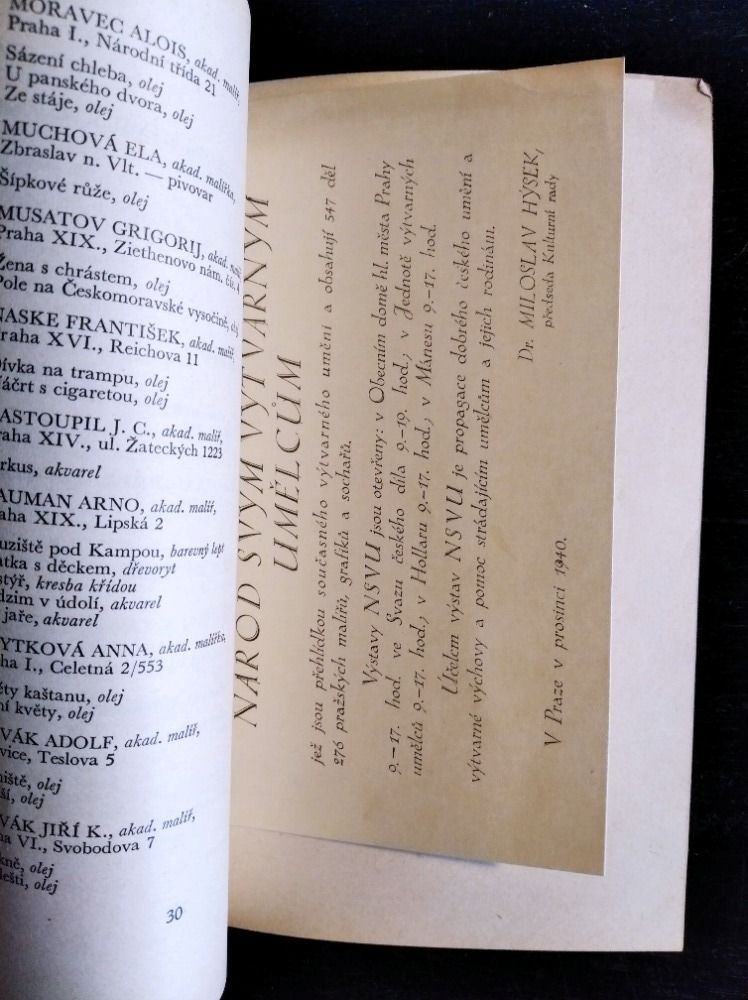 MORAVEC ALOIS, akad. malíř,
Praha I., Národní třída 21
Sázení chleba, olej
U panského dvora, olej
Ze stáje, olej
MUCHOVÁ ELA, akad. malířka,
Zbraslav n. Vlt. — pivovar
Šípkové růže, olej
MUSATOV GRIGORIJ, akad. malíř,
Praha XIX., Ziethenovo nám. čís.
Žena s chrástem, olej
Pole na Českomoravské vysočině, olej
NASKE FRANTIŠEK, akad. malíř,
Praha XVI., Reichova 11
Dívka na trampu, olej
Náčrt s cigaretou, olej
ASTOUPIL J. C., akad. malíř,
raha XIV., ul. Žateckých 1223
rkus, akvarel
AUMAN ARNO, akad. malíř,
aha XIX., Lipská 2
uziště pod Kampou, barevný lept
atka s děckem, dřevoryt
stýř, kresba křídou
dzim v údolí, akvarel
jaře, akvarel
YTKOVÁ ANNA, akad. malířka,
ha I., Celetná 2/553
ěty kaštanu, olej
ní květy, olej
VÁK ADOLF, akad. malíř,
vice, Teslova 5
niště, olej
ší, olej
VÁK JIŘÍ K., akad. malíř,
ha VI., Svobodova 7
kně, olej
lešti, olej
30
NÁROD SVÝM VÝTVARNÝM
UMĚLCŮM
jež jsou přehlídkou současného výtvarného umění a obsahují 547 děl
276 pražských malířů, grafiků a sochařů.
Výstavy NSVU jsou otevřeny: v Obecním domě hl. města Prahy
9.–17. hod. ve Svazu českého díla 9.–19. hod., v Jednotě výtvarných
umělců 9.–17. hod., v Hollaru 9.–17. hod., v Mánesu 9.–17. hod.
Účelem výstav NSVU je propagace dobrého českého umění a
výtvarné výchovy a pomoc strádajícím umělcům a jejich rodinám.
Dr. MILOSLAV HÝSEK,
předseda Kulturní rady
V Praze v prosinci 1940.